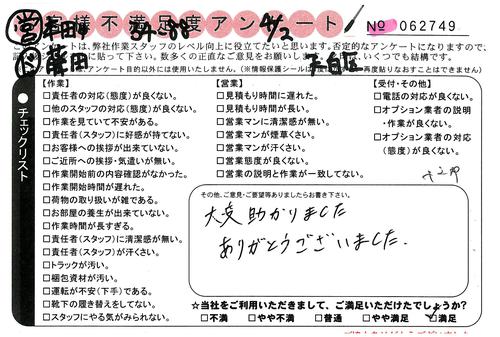 様不満足度アンケート
№ 062749
このアンケートは、弊社作業スタッフのレベル向上に役立てたいと思います。否定的なアンケートになりますので、
に貼って下さい。数多くの正直なご意見をお願いします。いくつでも結構です。
アンケート目的以外には使用いたしません。
チェックリスト
【作業】
□責任者の対応(態度)が良くない。
□他のスタッフの対応(態度)が良くない。
□作業を見ていて不安がある。
□責任者(スタッフ)に好感が持てない。
□お客様への挨拶が出来ていない。
□ご近所への挨拶・気遣いが無い。
□作業開始前の内容確認がなかった。
□作業開始時間が遅れた。
□荷物の取り扱いが雑である。
□お部屋の養生が出来ていない。
□作業時間が長すぎる。
□責任者(スタッフ)に清潔感が無い。
□責任者(スタッフ)が汗くさい。
□トラックが汚い。
□梱包資材が汚い。
□運転が不安(下手)である。
□靴下の履き替えをしてない。
□スタッフにやる気がみられない。
【営業】
□見積もり時間に遅れた。
□見積もり時間が長い。
□営業マンに清潔感が無い。
□営業マンが煙草くさい。
□営業マンが汗くさい。
□営業態度が良くない。
□営業の説明と作業が一致してない。
【受付・その他】
□電話の対応が良くない。
□オプション業者の説明
・作業が良くない。
□オプション業者の対応
(態度)が良くない。
その他、ご意見・ご要望等ありましたらお書き下さい。
大変助かりました
ありがとうございました.
☆当社をご利用いただきまして、ご満足いただけたでしょうか?
□不満 □やや不満 □普通 □やや満足 □満足